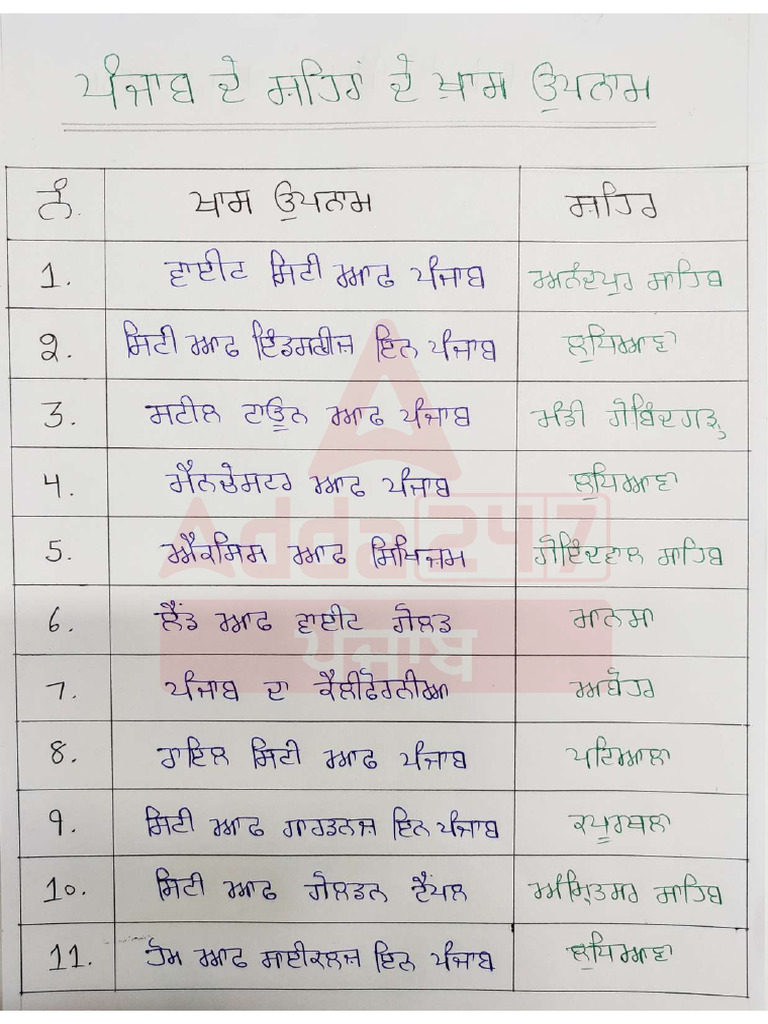 ਪੰਜਾਬ ਦੇ ਸ਼ਹਿਰਾਂ ਦੇ ਖ਼ਾਸ ਉਪਨਾਮ
ਨੰ. ਖਾਸ ਉਪਨਾਮ ਸ਼ਹਿਰ
1. ਵਾਈਟ ਸਿਟੀ ਆਫ ਪੰਜਾਬ ਅਨੰਦਪੁਰ ਸਾਹਿਬ
2. ਸਿਟੀ ਆਫ ਇੰਡਸਟਰੀਜ਼ ਇਨ ਪੰਜਾਬ ਲੁਧਿਆਣਾ
3. ਸਟੀਲ ਟਾਊਨ ਆਫ ਪੰਜਾਬ ਮੰਡੀ ਗੋਬਿੰਦਗੜ੍ਹ
4. ਮੈਨਚੇਸਟਰ ਆਫ ਪੰਜਾਬ ਲੁਧਿਆਣਾ
5. ਐਕਸਿਸ ਆਫ ਸਿਖਿਜ਼ਮ ਗੋਇੰਦਵਾਲ ਸਾਹਿਬ
6. ਲੈਂਡ ਆਫ ਵਾਈਟ ਗੋਲਡ ਮਾਨਸਾ
7. ਪੰਜਾਬ ਦਾ ਕੈਲੀਫੋਰਨੀਆ ਅਬੋਹਰ
8. ਰਾਇਲ ਸਿਟੀ ਆਫ ਪੰਜਾਬ ਪਟਿਆਲਾ
9. ਸਿਟੀ ਆਫ ਗਾਰਡਨਜ਼ ਇਨ ਪੰਜਾਬ ਕਪੂਰਥਲਾ
10. ਸਿਟੀ ਆਫ ਗੋਲਡਨ ਟੈਂਪਲ ਅੰਮ੍ਰਿਤਸਰ ਸਾਹਿਬ
11. ਹੋਮ ਆਫ ਸਾਈਕਲਜ਼ ਇਨ ਪੰਜਾਬ ਲੁਧਿਆਣਾ
Adda247
ਪੰਜਾਬ